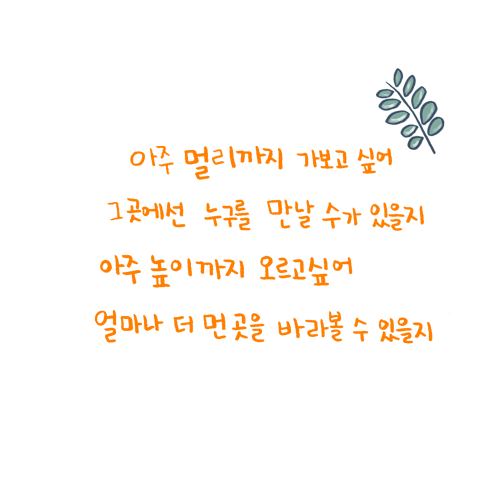 아주 멀리까지 가보고 싶어
그곳에선 누구를 만날 수가 있을지
아주 높이까지 오르고싶어
얼마나 더 먼곳을 바라볼 수 있을지